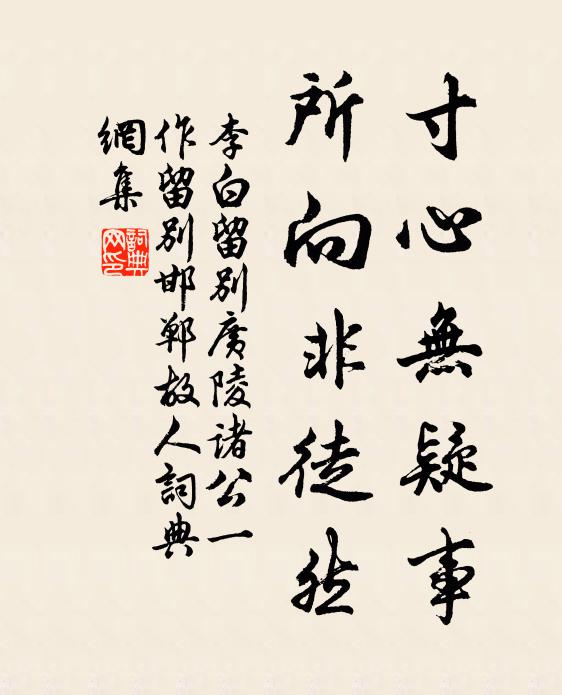 寸心無疑事
所向非徒然
李白留別廣陵諸公一
作留別邯鄲故人詞典
網集
詞典
网印